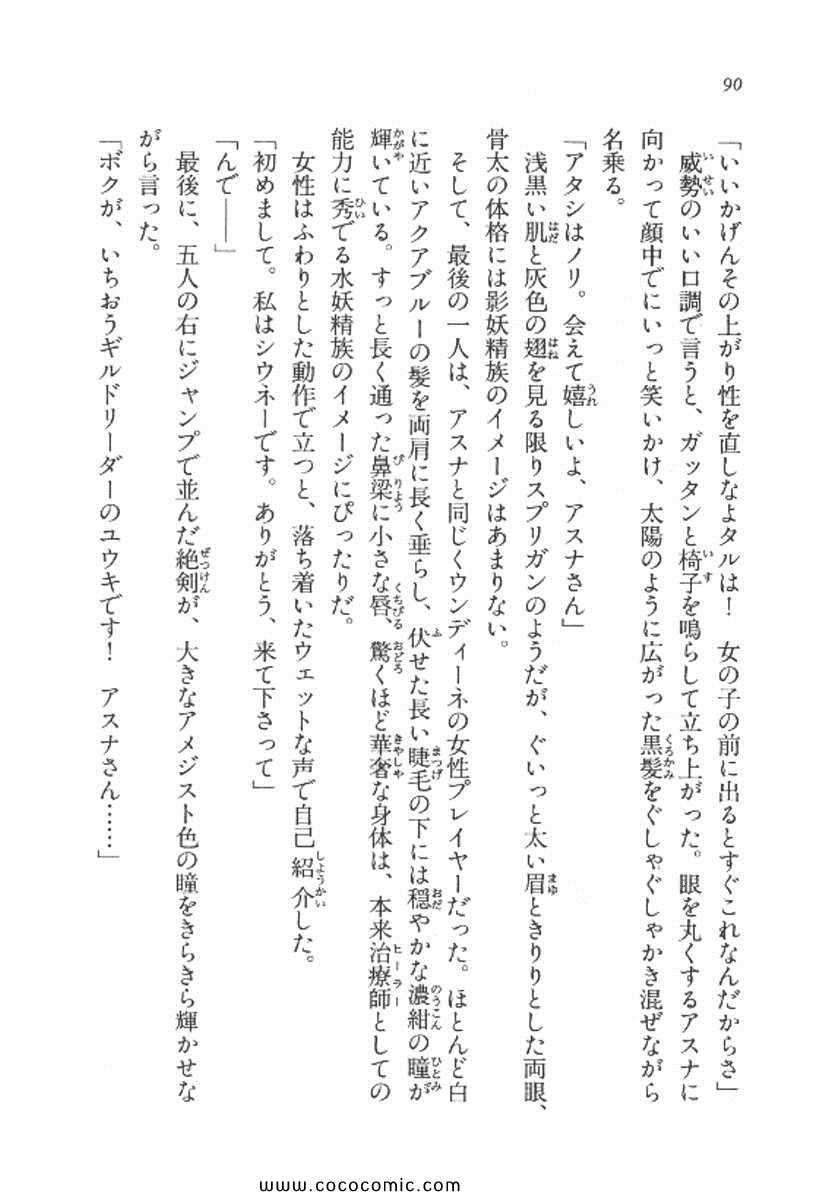 90
「いいかげんその上がり性を直しなよタルは！　女の子の前に出るとすぐこれなんだからさ」
　威勢のいい口調で言うと、ガッタンと椅子を鳴らして立ち上がった。眼を丸くするアスナに
向かって顔中でにいっと笑いかけ、太陽のように広がった黒髪をぐしゃぐしゃかき混ぜながら
名乗る。
「アタシはノリ。会えて嬉しいよ、アスナさん」
　浅黒い肌と灰色の翅を見る限りスプリガンのようだが、ぐいっと太い眉ときりりとした両眼、
骨太の体格には影妖精族のイメージはあまりない。
　そして、最後の一人は、アスナと同じくウンディーネの女性プレイヤーだった。ほとんど白
に近いアクアブルーの髪を両肩に長く垂らし、伏せた長い睫毛の下には穏やかな濃紺の瞳が
輝いている。すっと長く通った鼻梁に小さな唇、驚くほど華奢な身体は、本来治療師としての
能力に秀でる水妖精族のイメージにぴったりだ。
　女性はふわりとした動作で立つと、落ち着いたウェットな声で自己紹介した。
「初めまして。私はシウネーです。ありがとう、来て下さって」
「んで――」
　最後に、五人の右にジャンプで並んだ絶剣が、大きなアメジスト色の瞳をきらきら輝かせな
がら言った。
「ボクが、いちおうギルドリーダーのユウキです！　アスナさん……」
www.cococomic.com